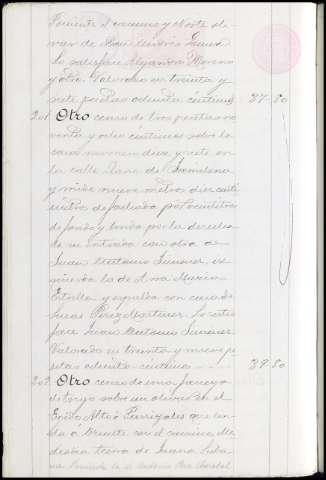 Poniente el camino y Norte oli-
var de
lo satisface Alejandro Moreno
y otro. Valorado en treinta y
siete pesetas ochenta céntimos 37-80
201 Otro censo de tres pesetas no
venta y ocho céntimos sobre la
casa número diez y siete en
la calle Llana de Jamilena
y mide nueve metros diez centí
metros de fachada por
de fondo y linda por la derecha
de su entrada con otra de
Juan Antonio Jimenez iz
quierda la de Ana Maria
Estrella y espalda con casa de
Lucas Perez Martinez. Lo satis
face Juan Antonio Jimenez
Valorado en treinta y nueve pe
setas ochenta céntimos 39-80
202 Otro censo de una fanega
de trigo sobre un olivar en el
que lin
da á Oriente con el camino, Me
diodia tierra de Juana
na Poniente la de